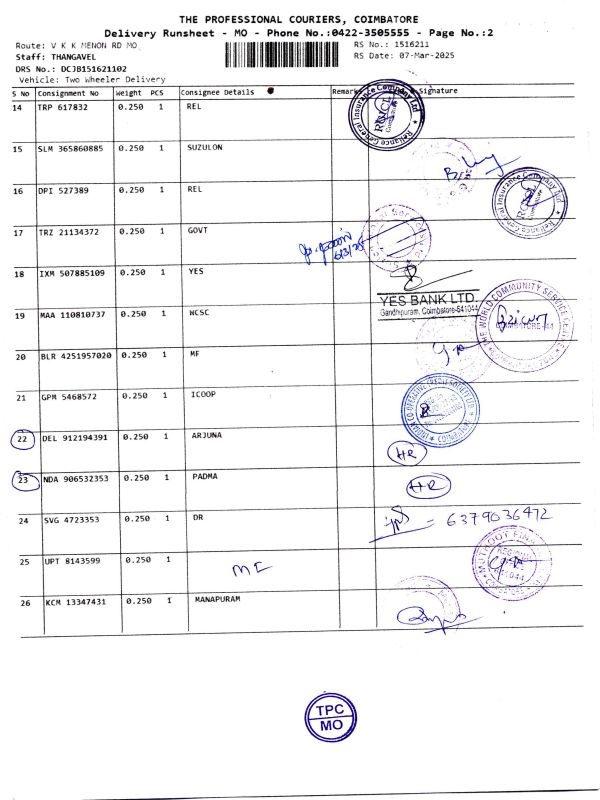 THE PROFESSIONAL COURIERS, COIMBATORE
Delivery Runsheet - MO - Phone No.:0422-3505555 - Page No.:2
Route: V K K MENON RD MO
RS No.: 1516211
Staff: THANGAVEL
RS Date: 07-Mar-2025
DRS No.: DCJB151621102
Vehicle: Two Wheeler Delivery
S No Consignment No Weight PCS Consignee Details Remarks Signature
14 TRP 617832 0.250 1 REL
Reliance General Insurance Company Ltd
RGICL
Coimbatore
15 SLM 365860885 0.250 1 SUZULON
16 DPI 527389 0.250 1 REL
Reliance General Insurance Company Ltd
RGICL
Coimbatore
17 TRZ 21134372 0.250 1 GOVT
18 IXM 507885109 0.250 1 YES
YES BANK LTD.
Gandhipuram, Coimbatore-641044
19 MAA 110810737 0.250 1 WCSC
THE WORLD COMMUNITY SERVICE CENTRE
COIMBATORE-44
20 BLR 4251957020 0.250 1 MF
21 GPM 5468572 0.250 1 ICOOP
22 DEL 912194391 0.250 1 ARJUNA
HR
23 NDA 906532353 0.250 1 PADMA
HR
24 SVG 4723353 0.250 1 DR
= 6379036472
25 UPT 8143599 0.250 1
MUTHOOT FIN
REGIONAL
26 KCM 13347431 0.250 1 MANAPURAM
TPC
MO